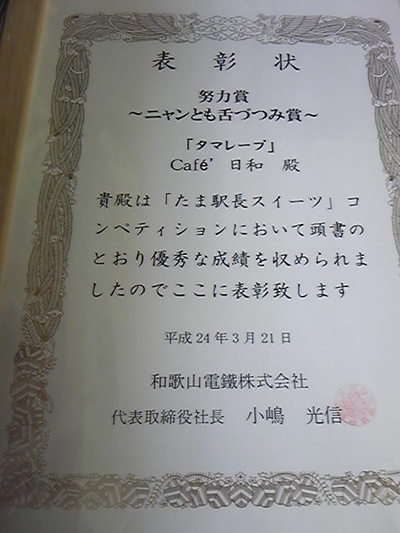 表彰状
努力賞
～ニャンとも舌づつみ賞～
「タマレーブ」
Café’ 日和 殿
貴殿は「たま駅長スイーツ」コ
ンペティションにおいて頭書の
とおり優秀な成績を収められま
したのでここに表彰致します
平成24年3月21日
和歌山電鐵株式会社
代表取締役社長 小嶋 光信